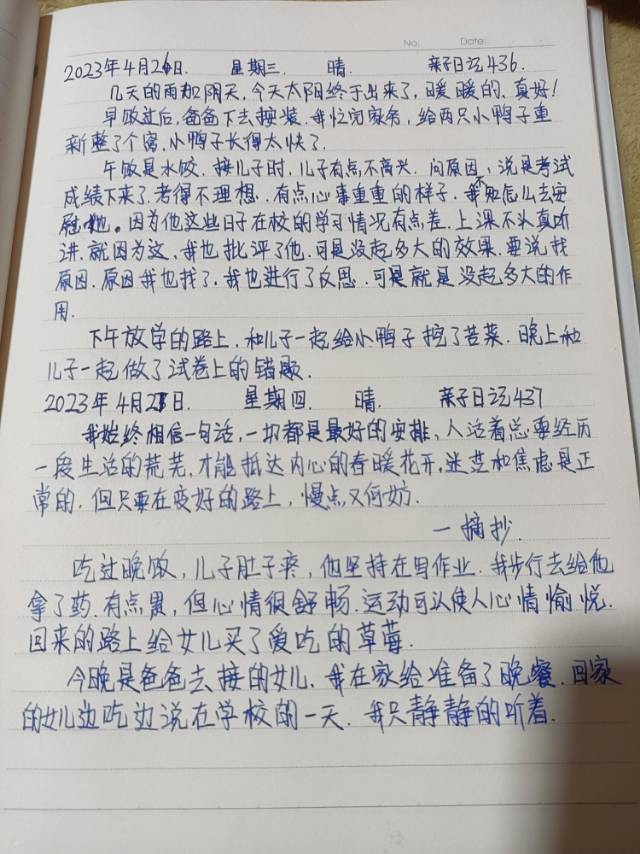 No:        Date:
2023年4月26日. 星期三. 晴. 亲子日记436.
几天的雨加阴天,今天太阳终于出来了,暖暖的.真好!
早饭过后,爸爸下去换装.我忙完家务,给两只小鸭子重
新整了个窝.小鸭子长得太快了.
午饭是水饺.接儿子时,儿子有点不高兴.问原因,说是考试
成绩下来了.考得不理想.有点心事重重的样子.我不知怎么去安
慰他。因为他这些日子在校的学习情况有点差.上课不认真听
讲.就因为这,我也批评了他.可是没起多大的效果.要说找
原因.原因我也找了.我也进行了反思.可是就是没起多大的作
用.
下午放学的路上,和儿子一起给小鸭子挖了苦菜.晚上和
儿子一起做了试卷上的错题.
2023年4月27日. 星期四. 晴. 亲子日记437
我始终相信一句话,一切都是最好的安排,人活着总要经历
一段生活的荒芜.才能抵达内心的春暖花开,迷茫和焦虑是正
常的.但只要在变好的路上,慢点又何妨.
一摘抄.
吃过晚饭,儿子肚子疼,他坚持在写作业.我步行去给他
拿了药.有点累,但心情很舒畅.运动可以使人心情愉悦.
回来的路上给女儿买了爱吃的草莓.
今晚是爸爸去接的女儿.我在家给准备了晚餐.回家
的女儿边吃边说在学校的一天.我只静静的听着.